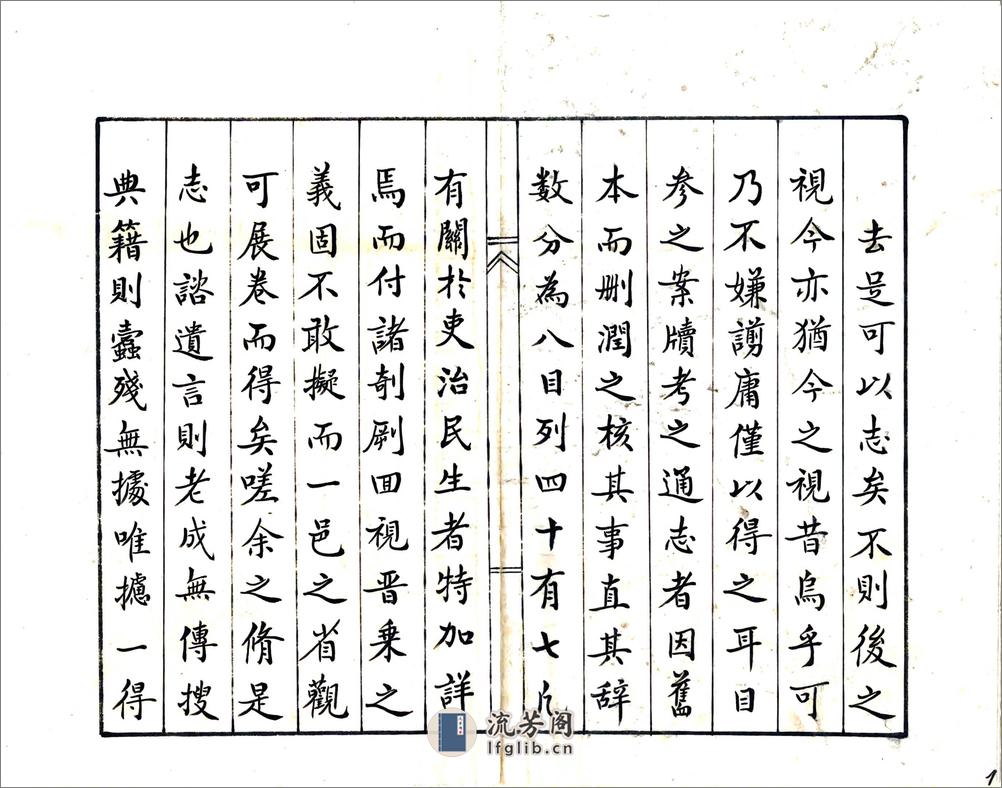 去是可以志矣不則後之
視今亦猶今之視昔烏乎可
乃不嫌謭庸僅以得之耳目
参之案牘考之通志者因舊
本而刪潤之核其事直其辞
数分為八目列四十有七凡
有關於吏治民生者特加詳
焉而付諸剞劂回視晋乗之
義固不敢擬而一邑之省觀
可展卷而得矣嗟余之脩是
志也諮遺言則老成無傳搜
典籍則蠹殘無據唯攄一得
流芳阁
lfglib.cn
1